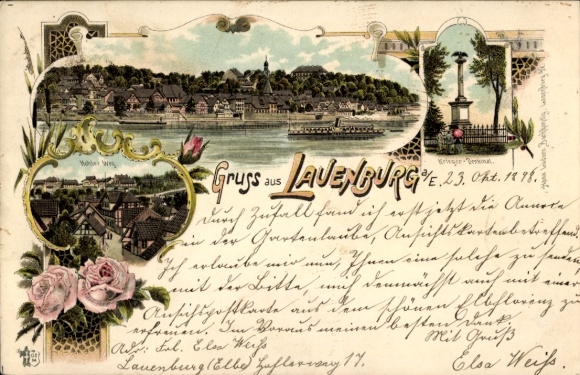 Hohler Weg.
Krieger-Denkmal.
Gruss aus LAUENBURG a/E. 23. Okt. 1898.
Durch Zufall fand ich erst jetzt die Annonce
in der Gartenlaube, Ansichtskarten betreffend.
Ich erlaube mir nun Ihnen eine solche zu senden
mit der Bitte, mich demnächst auch mit einer
Ansichtspostkarte aus dem schönen Elbflorenz zu
erfreuen. Im Voraus meinen besten Dank.
Mit Gruß
Adr: Frl. Elsa Weiß
Elsa Weiß.
Lauenburg (Elbe) Haflerweg 17.